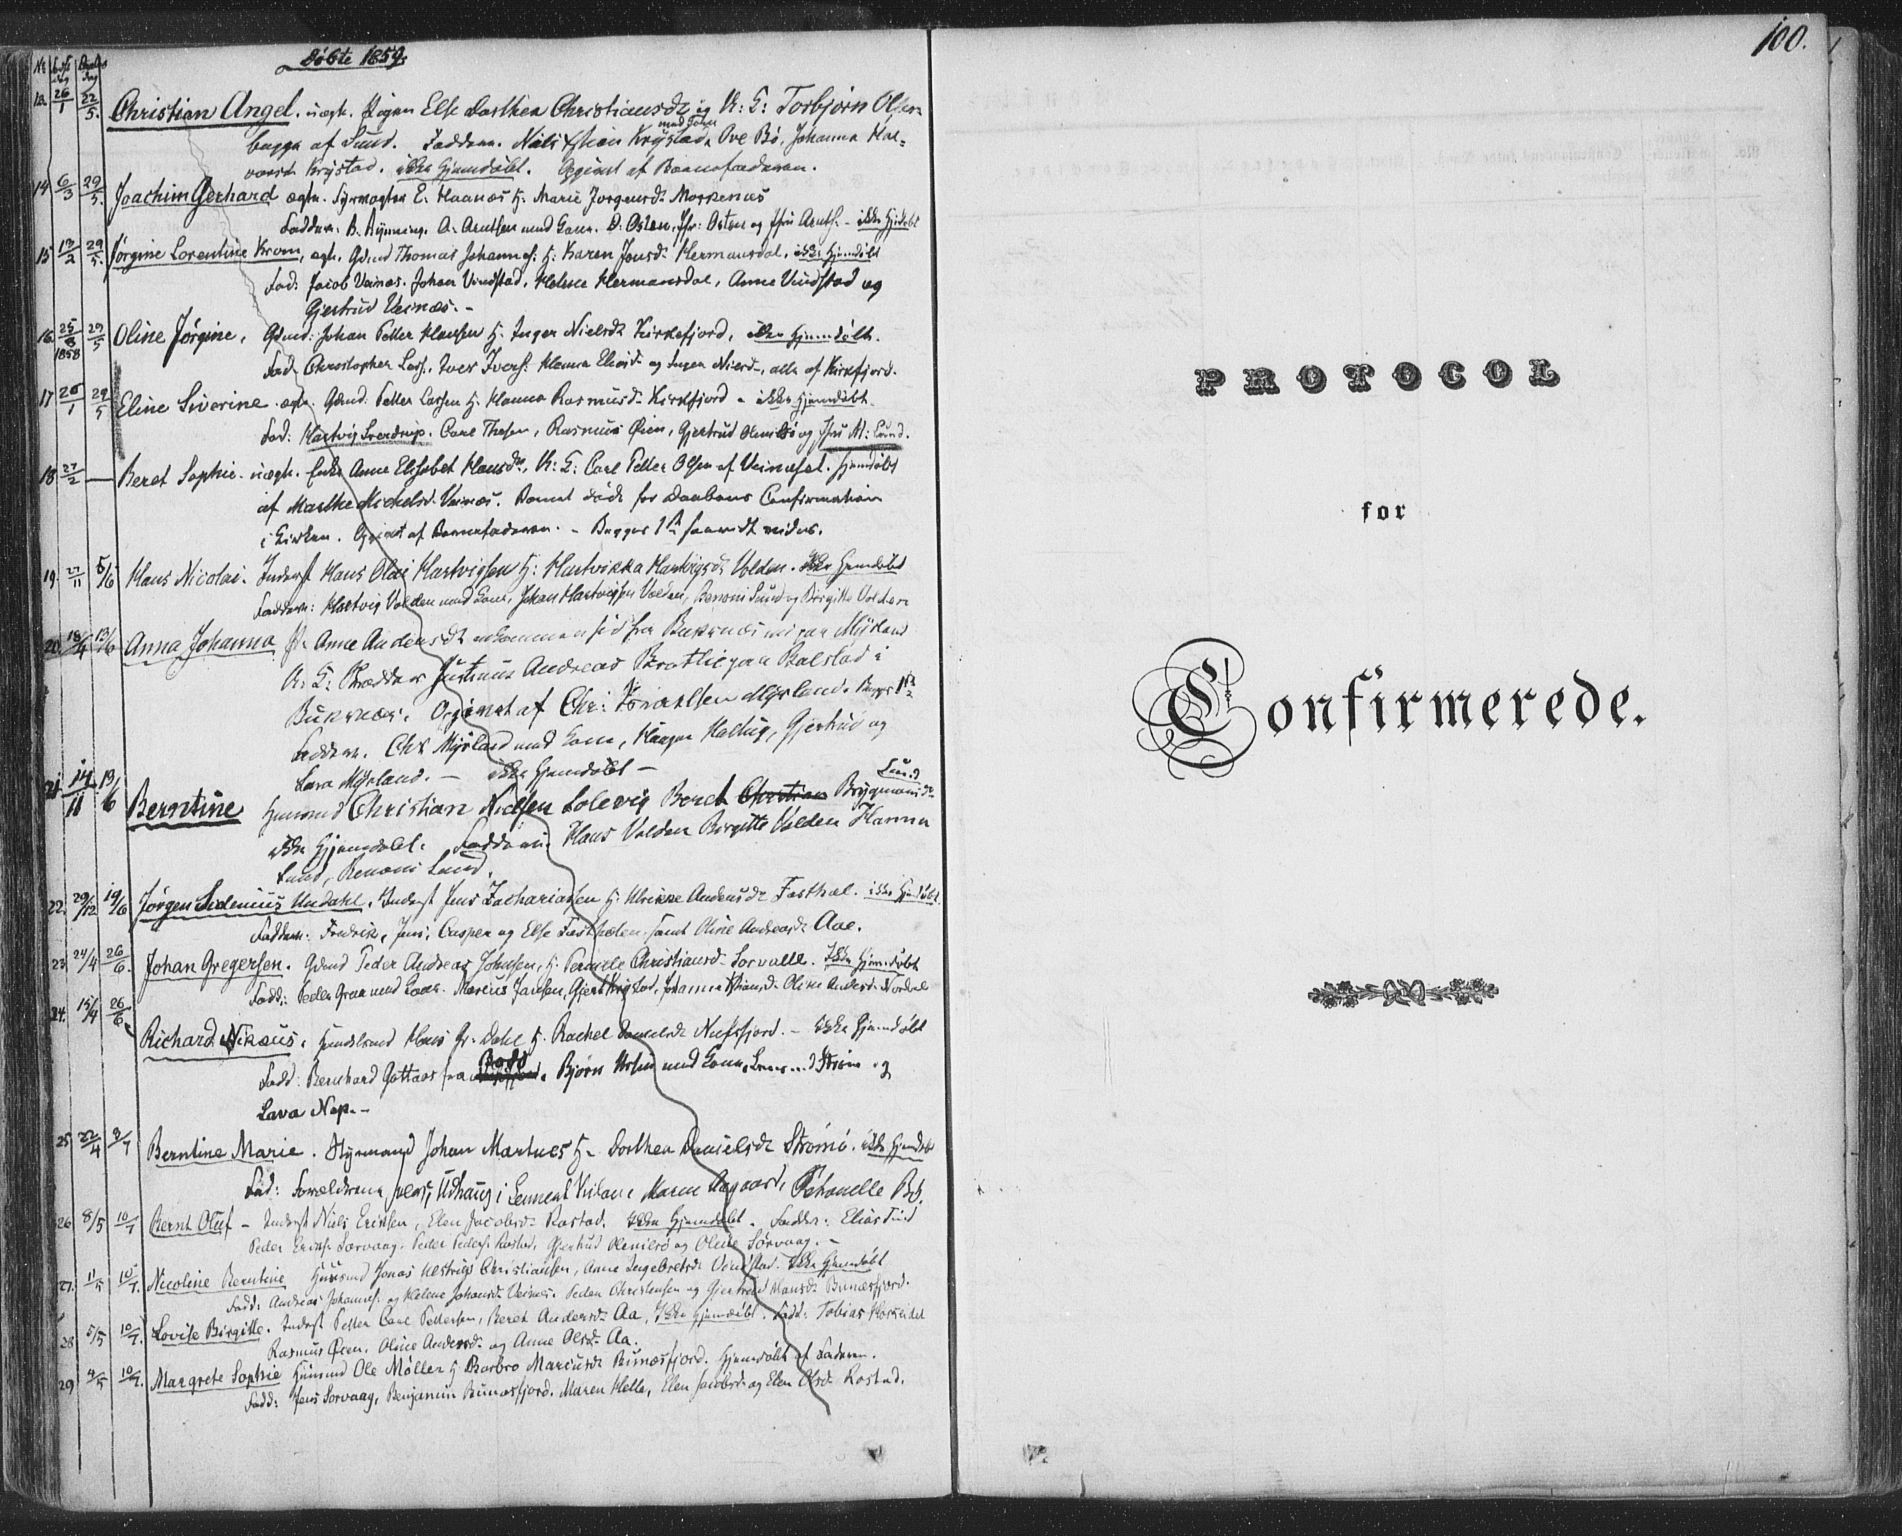 Døbte 1859.
100.
13. 26/1 22/5. Christian Angel. uægte. Pigen Else Dorthea Christiansdr og U: K: Torbjørn Olsen
begge af Sund. Faddere. Niels Krystad Ove Bø, Johanna Hal=
vorsd Krystad. ikke hjemdøbt. Opgivet af Barnefaderen.
14 6/3 29/5. Joachim Gerhard ægte. Fyrvogten E. Haanæs H: Marie Jørgensdr Moskenæs
Faddere: B. Rynning. A. Arntsen med Kone. O. Osten, Jfr: Osten og Jfru Arnts. - ikke hjdøbt
15 /2 29/5. Jørgine Lorentine Krom, ægt. Gdmd Thomas Johannes. H: Karen Jonsdr Hermansdal, ikke hjemdøbt
Fad: Jacob Veinæs. Johan Vindstad, Helene Hermansdal, Anne Vindstad og
Gjertrud Veinæs. -
16. 25/8 1858 29/5 Oline Jørgine, Gdmd: Johan Petter Hansen H: Inger Nielsdr Kirkefjord, ikke hjemdøbt.
Fad. Christopher Lars., Iver Ivers. Hanna Eliasd. og Inger Nielsd., alle af Kirkfjord.
17 26/1 29/5 Eline Siverine. ægte. Gdmd: Petter Larsen H: Hanna Rasmusdr Kirkfjord - ikke hjemdøbt.
Fad: Hartvig Sverdrup. Carl Thesen, Rasmus Øien, Gjertrud Olenilsø og Jfru M: Lund.
18 27/2 — Beret Sophie. uægte. Enke Anne Elisabet Hansdr, U: K: Carl Petter Olsen af Veinæset. hjemdøbt
af Marthe Mickelsd. Veinæs. Barnet døde før Daabens Confirmation
i Kirken. Opgivet af Barnefaderen. - Begges 1ste saavidt vides.
19. 27/11 5/6 Hans Nicolai. Inderst Hans Olai Hartvigsen H: Hartvikka Hartvigsdr Volden. Ikke hjemdøbt
Faddere: Hartvig Volden med Kone, Johan Hartvigsen Volden, Benoni Sund og Birgitte Volden
20. 18/4 13/6 Anna Johanna Anne Andersdr
Skrædder Justinus Andreas Brotlie paa Balstad i
Buknæs. Opgivet af Chr: Israelsen Myrland. Begges 1ste
Faddere. Chr Myrland med Kone, Hattvig, Gjertrud og
Lava Myrland. — ikke hjemdøbt —
21. 14/11 19/6 Berntine Huusmd Christian Nielsen Solevig Beret Brygmansdr Sund
ikke hjemdøbt. Faddere. Hans Volden Birgitte Volden Hanna
Sund, Benoni Sund.
22. 29/12 19/6 Jørgen Sidenius Undahl. Inderst Jens Zachariasen H: Ulrikke Andersdr Fasthæl. ikke hjdøbt.
Faddere: Fredrik, Jens, Casper og Else Fasthælen samt Oline Andersdr Aae.
23. 24/4 26/6. Johan Gregersen. Gdmd Peder Andreas Johnsen, H: Pernele Christiansd. Sorvalle. Ikke hjemdøbt
Fadd: Peder Graa med Kone. Marius Jansen, Gjert Krystad, Johanna Oline Andersd. Nordal
24. 15/4 26/6 Richard Nikæus. Huusmand Hans Gr. Dahl H: Rachel Danielsdr Nufsfjord. - Ikke hjemdøbt
Fadd: Bernhard Gottaas fra Bodø. Bjørn med Kone, og
Lava Nap. -
25 22/4 3/7 Berntine Marie. Styrmand Johan Martnes H. Dorthea Danielsdr Strømø. ikke hjemdøbt
Fad: Forældrene, Udhaug, Maren Aagaard, Petronelle
26 8/5 10/7 Bernt Oluf - Inderst Niels Eriksen, Elen Jacobsdr Rostad. Ikke hjemdøbt. Fadder: Elias Tind
Peder Eriks. Sørvaag. Peder Peders. Rostad, Gjertrud Olenilsø og Oline Sørvaag. -
27. 11/5 10/7. Nicoline Berntine Huusmd Jonas Ulstrup Christiansen, Anne Ingebretsdr Vindstad. Ikke hjemdøbt
Fadd: Andreas Johannes. og Helene Johansdr Veinæs. Peder Christensen og Gjertrud Hansdr Bunæsfjord.
28 5/5 10/7. Lovise Birgitte. Inderst Petter Carl Pettersen, Beret Andersdr Aa, Ikke hjemdøbt. Fadd: Tobias Horseidet
Rasmus Øien. Oline Andersd. og Anne Olsdr Aa.
29 4/5 10/7. Margrete Sophie Huusmd Ole Møller H: Barbro Marcusdr Bunæsfjord. hjemdøbt af Faderen.
Fadd: Jens Sorvaag, Benjamin Bunæsfjord. Maren Helle, Elen Jacobsd. og Elen Olsd. Rostad.
PROTOCOL
for
Confirmerede.